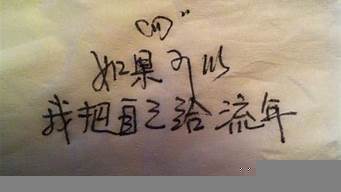 如果可以
我把自己给流年